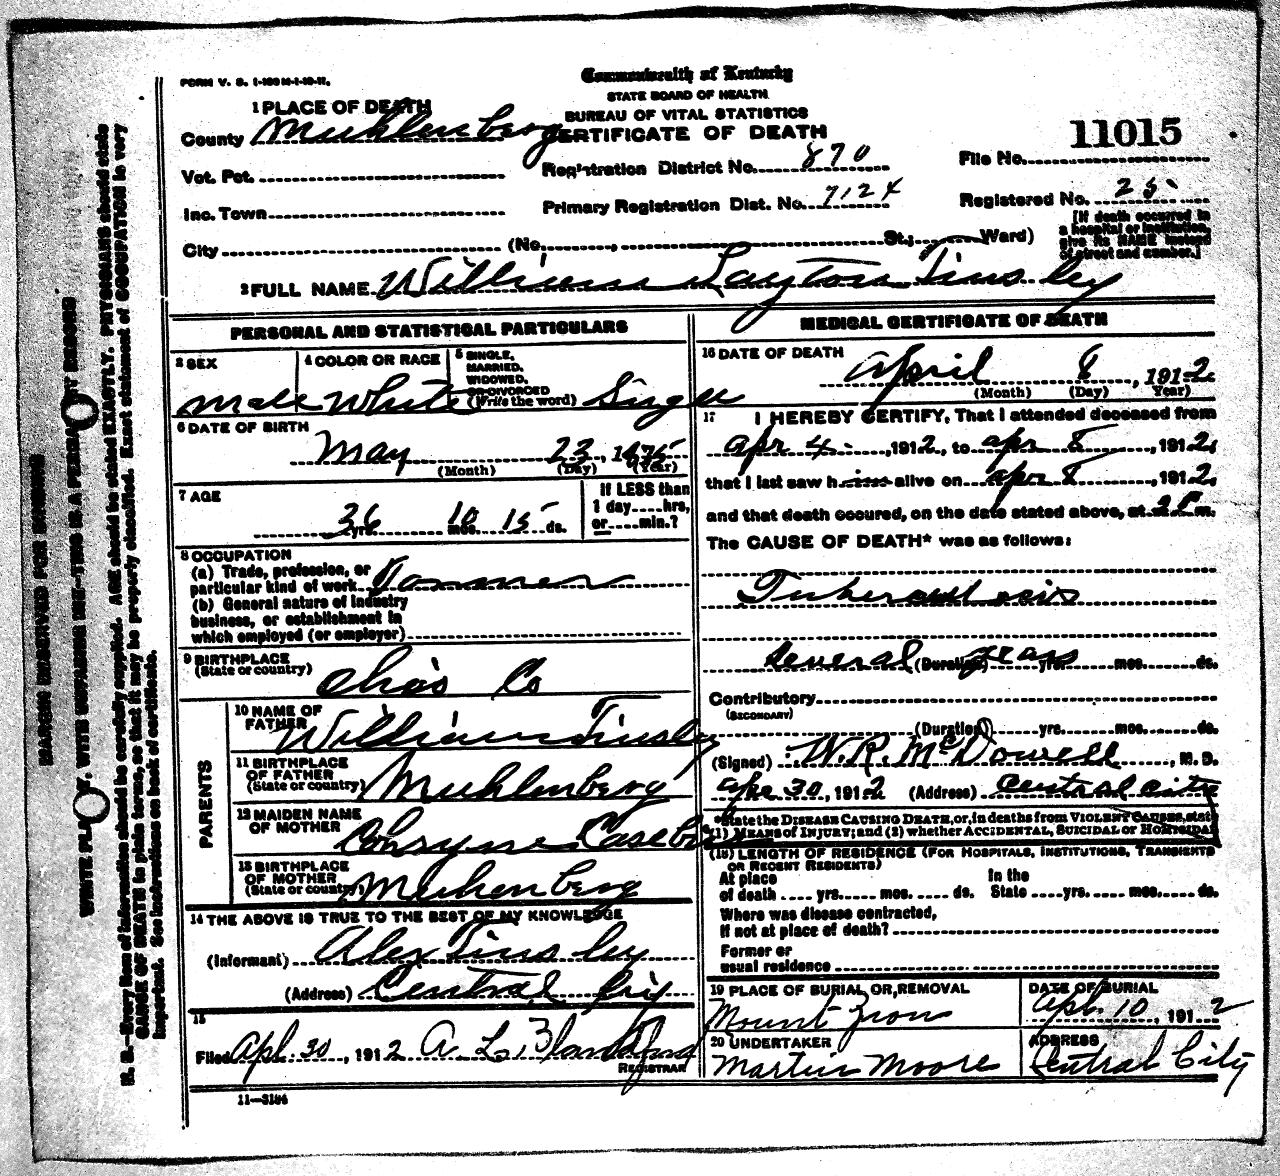 FORM V. S. 1-150 M-1-10-11.
Commonwealth of Kentucky
STATE BOARD OF HEALTH
BUREAU OF VITAL STATISTICS
CERTIFICATE OF DEATH
1 PLACE OF DEATH
County Muhlenberg
Vot. Pct.
Inc. Town
City (No. , St.; Ward)
Registration District No. 870
Primary Registration Dist. No. 7124
File No. 11015
Registered No. 25
[If death occurred in
a hospital or institution,
give its NAME instead
of street and number.]
2 FULL NAME William Layton Tinsley
PERSONAL AND STATISTICAL PARTICULARS
3 SEX
Male
4 COLOR OR RACE
White
5 SINGLE,
MARRIED,
WIDOWED,
OR DIVORCED
(Write the word) Single
6 DATE OF BIRTH
May 23, 1875
(Month) (Day) (Year)
7 AGE
36 yrs. 10 mos. 15 ds.
If LESS than
1 day....hrs,
or....min.?
8 OCCUPATION
(a) Trade, profession, or
particular kind of work Farmer
(b) General nature of industry
business, or establishment in
which employed (or employer)
9 BIRTHPLACE
(State or country) Ohio Co
PARENTS
10 NAME OF
FATHER William Tinsley
11 BIRTHPLACE
OF FATHER
(State or country) Muhlenberg
12 MAIDEN NAME
OF MOTHER
13 BIRTHPLACE
OF MOTHER
(State or country) Muhlenberg
14 THE ABOVE IS TRUE TO THE BEST OF MY KNOWLEDGE
(Informant) Alex Tinsley
(Address) Central City
15
Filed Apl. 30, 1912 A. L. Blandford
REGISTRAR
11—3184
MEDICAL CERTIFICATE OF DEATH
16 DATE OF DEATH
April 8, 1912
(Month) (Day) Year)
17 I HEREBY CERTIFY, That I attended deceased from
apr 4, 1912, to apr 8, 1912,
that I last saw him alive on apr 8, 1912,
and that death occured, on the date stated above, at 2 P m.
The CAUSE OF DEATH* was as follows:
Tuberculosis
Several (Duration) years yrs. mos. ds.
Contributory
(SECONDARY)
(Duration) yrs. mos. ds.
(Signed) W. R. McDowell, M. D.
Apr 30, 1912 (Address) Central City
*State the DISEASE CAUSING DEATH, or, in deaths from VIOLENT CAUSES, state
(1) MEANS OF INJURY; and (2) whether ACCIDENTAL, SUICIDAL or HOMICIDAL
(18) LENGTH OF RESIDENCE (FOR HOSPITALS, INSTITUTIONS, TRANSIENTS
OR RECENT RESIDENTS)
At place In the
of death .... yrs. mos. ds. State yrs. mos. ds.
Where was disease contracted,
If not at place of death?
Former or
usual residence
19 PLACE OF BURIAL OR, REMOVAL
Mount Zion
DATE OF BURIAL
Apl. 10, 1912
20 UNDERTAKER
Martin Moore
ADDRESS
Central City
MARGIN RESERVED FOR BINDING
WRITE PLAINLY, WITH UNFADING INK—THIS IS A PERMANENT RECORD
N. B.—Every item of information should be carefully supplied. AGE should be stated EXACTLY. PHYSICIANS should state
CAUSE OF DEATH in plain terms, so that it may be properly classified. Exact statement of OCCUPATION is very
important. See instructions on back of certificate.